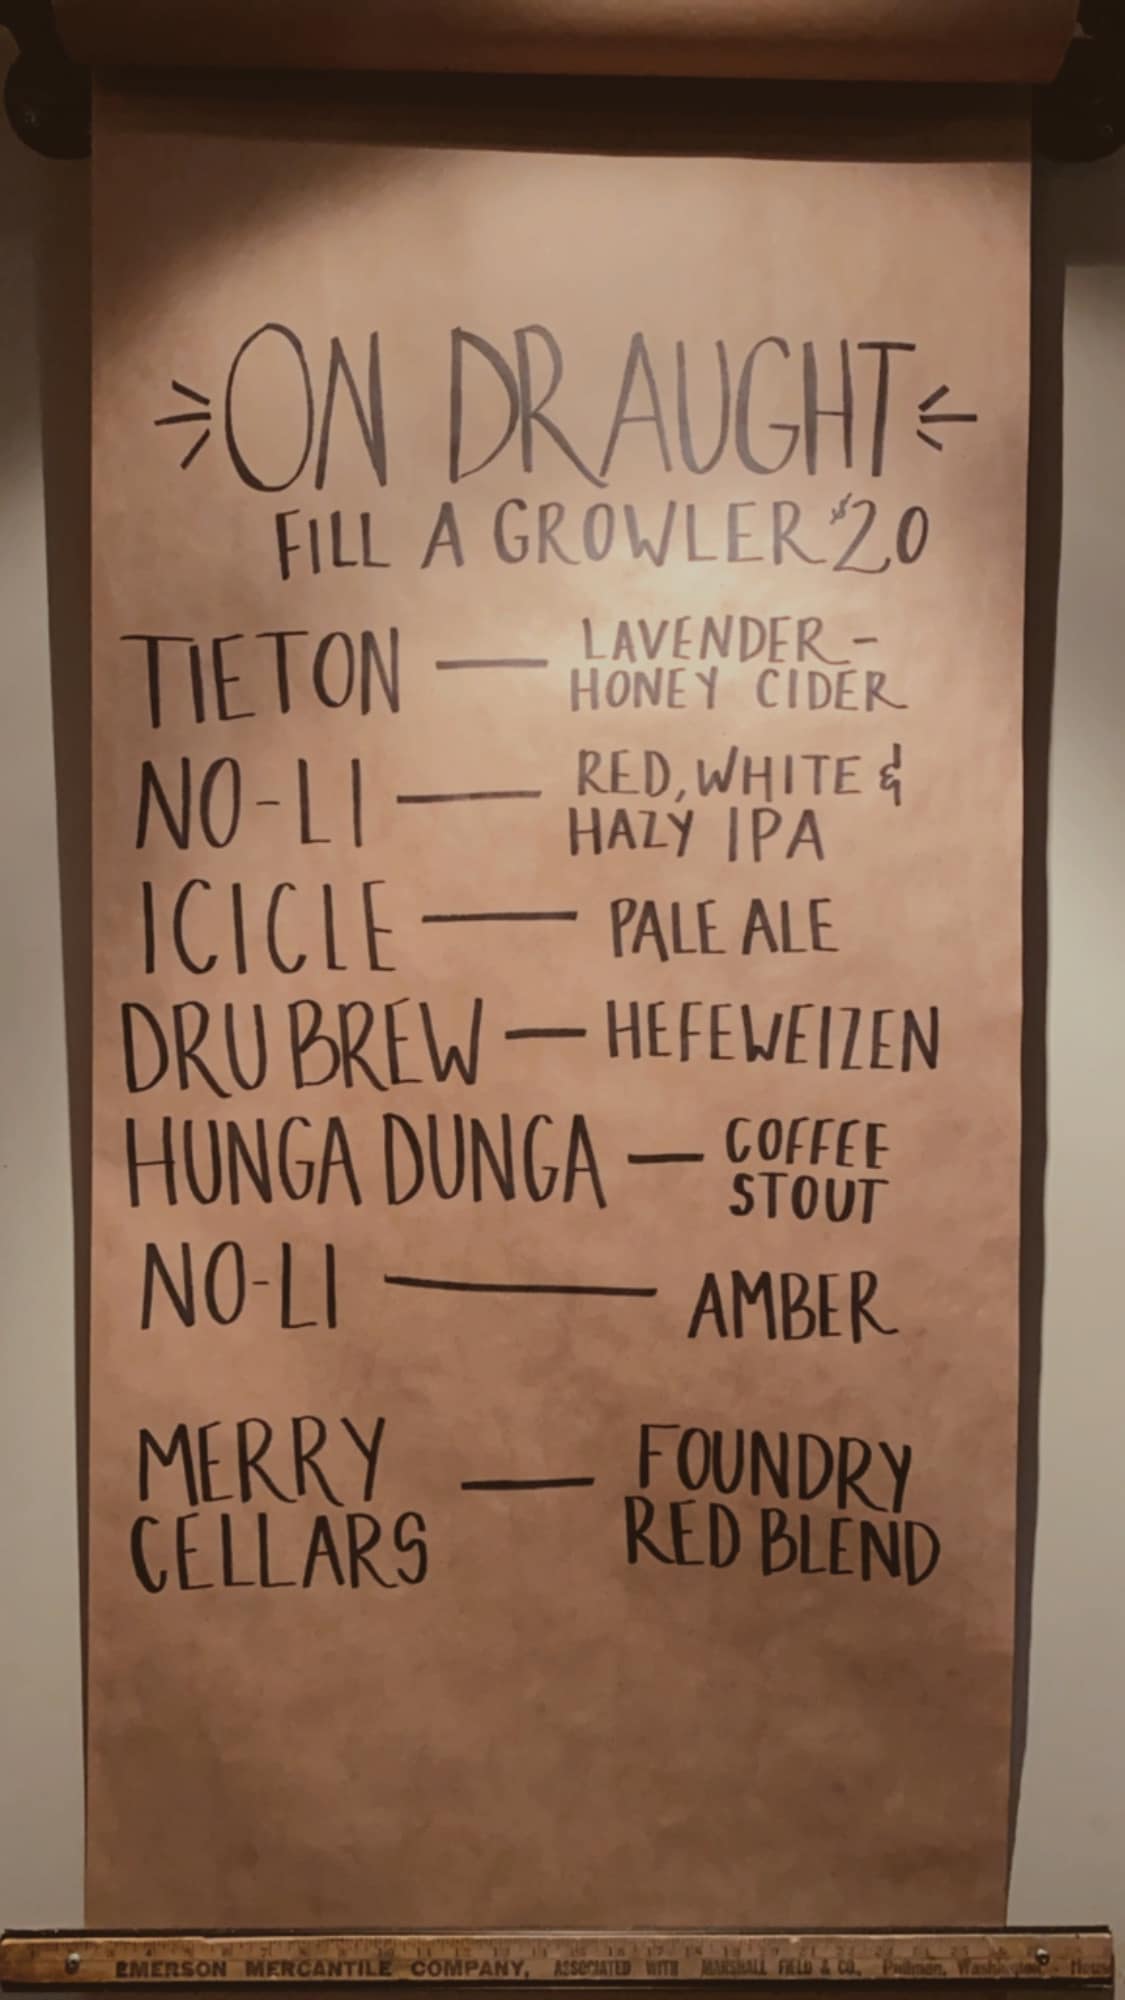 ON DRAUGHT
FILL A GROWLER $20
TIETON — LAVENDER-
HONEY CIDER
NO-LI — RED, WHITE &
HAZY IPA
ICICLE — PALE ALE
DRU BREW — HEFEWEIZEN
HUNGA DUNGA — COFFEE
STOUT
NO-LI — AMBER
MERRY
CELLARS — FOUNDRY
RED BLEND
EMERSON MERCANTILE COMPANY, ASSOCIATED WITH MARSHALL FIELD & CO. Pullman, Washington